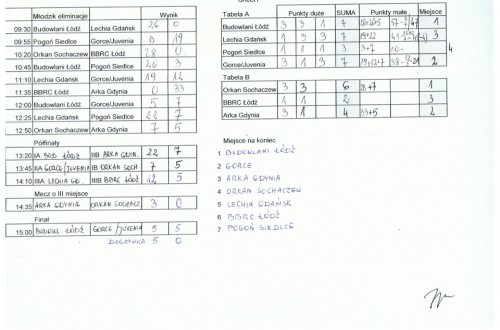 Młodzik eliminacje Wynik
09:30 Budowlani Łódź Lechia Gdańsk 26 0
09:55 Pogoń Siedlce Gorce/Juvenia 0 19
10:20 Orkan Sochaczew BBRC Łódź 28 0
10:45 Budowlani Łódź Pogoń Siedlce 26 3
11:10 Lechia Gdańsk Gorce/Juvenia 19 12
11:35 BBRC Łódź Arka Gdynia 0 33
12:00 Budowlani Łódź Gorce/Juvenia 5 7
12:25 Lechia Gdańsk Pogoń Siedlce 22 7
12:50 Orkan Sochaczew Arka Gdynia 7 5
Półfinały
13:20 IA BUD ŁÓDŹ IIB ARKA GDYN. 22 7
13:45 IIA GORCE/JUVENIA IB ORKAN SOCH 7 5
14:10 IIIA LECHIA GD. IIIB BBRC ŁÓDŹ 12 5
Mecz o III miejsce
14:35 ARKA GDYNIA ORKAN SOCHACZ 3 0
Finał
15:00 BUDOWL ŁÓDŹ GORCE/JUVENIA 5 5
DOGRYWKA 5 0
Tabela A Punkty duże SUMA Punkty małe Miejsce
Budowlani Łódź 3 3 1 7 1
Lechia Gdańsk 1 3 3 7 19+22 3
Pogoń Siedlce 1 1 1 3 3+7 4
Gorce/Juvenia 3 1 3 7 19+12+7 2
Tabela B
Orkan Sochaczew 3 3 6 28+7 1
BBRC Łódź 1 1 2 3
Arka Gdynia 3 1 4 33+5 2
Miejsce na koniec
1 BUDOWLANI ŁÓDŹ
2 GORCE
3 ARKA GDYNIA
4 ORKAN SOCHACZEW
5 LECHIA GDAŃSK
6 BBRC ŁÓDŹ
7 POGOŃ SIEDLCE